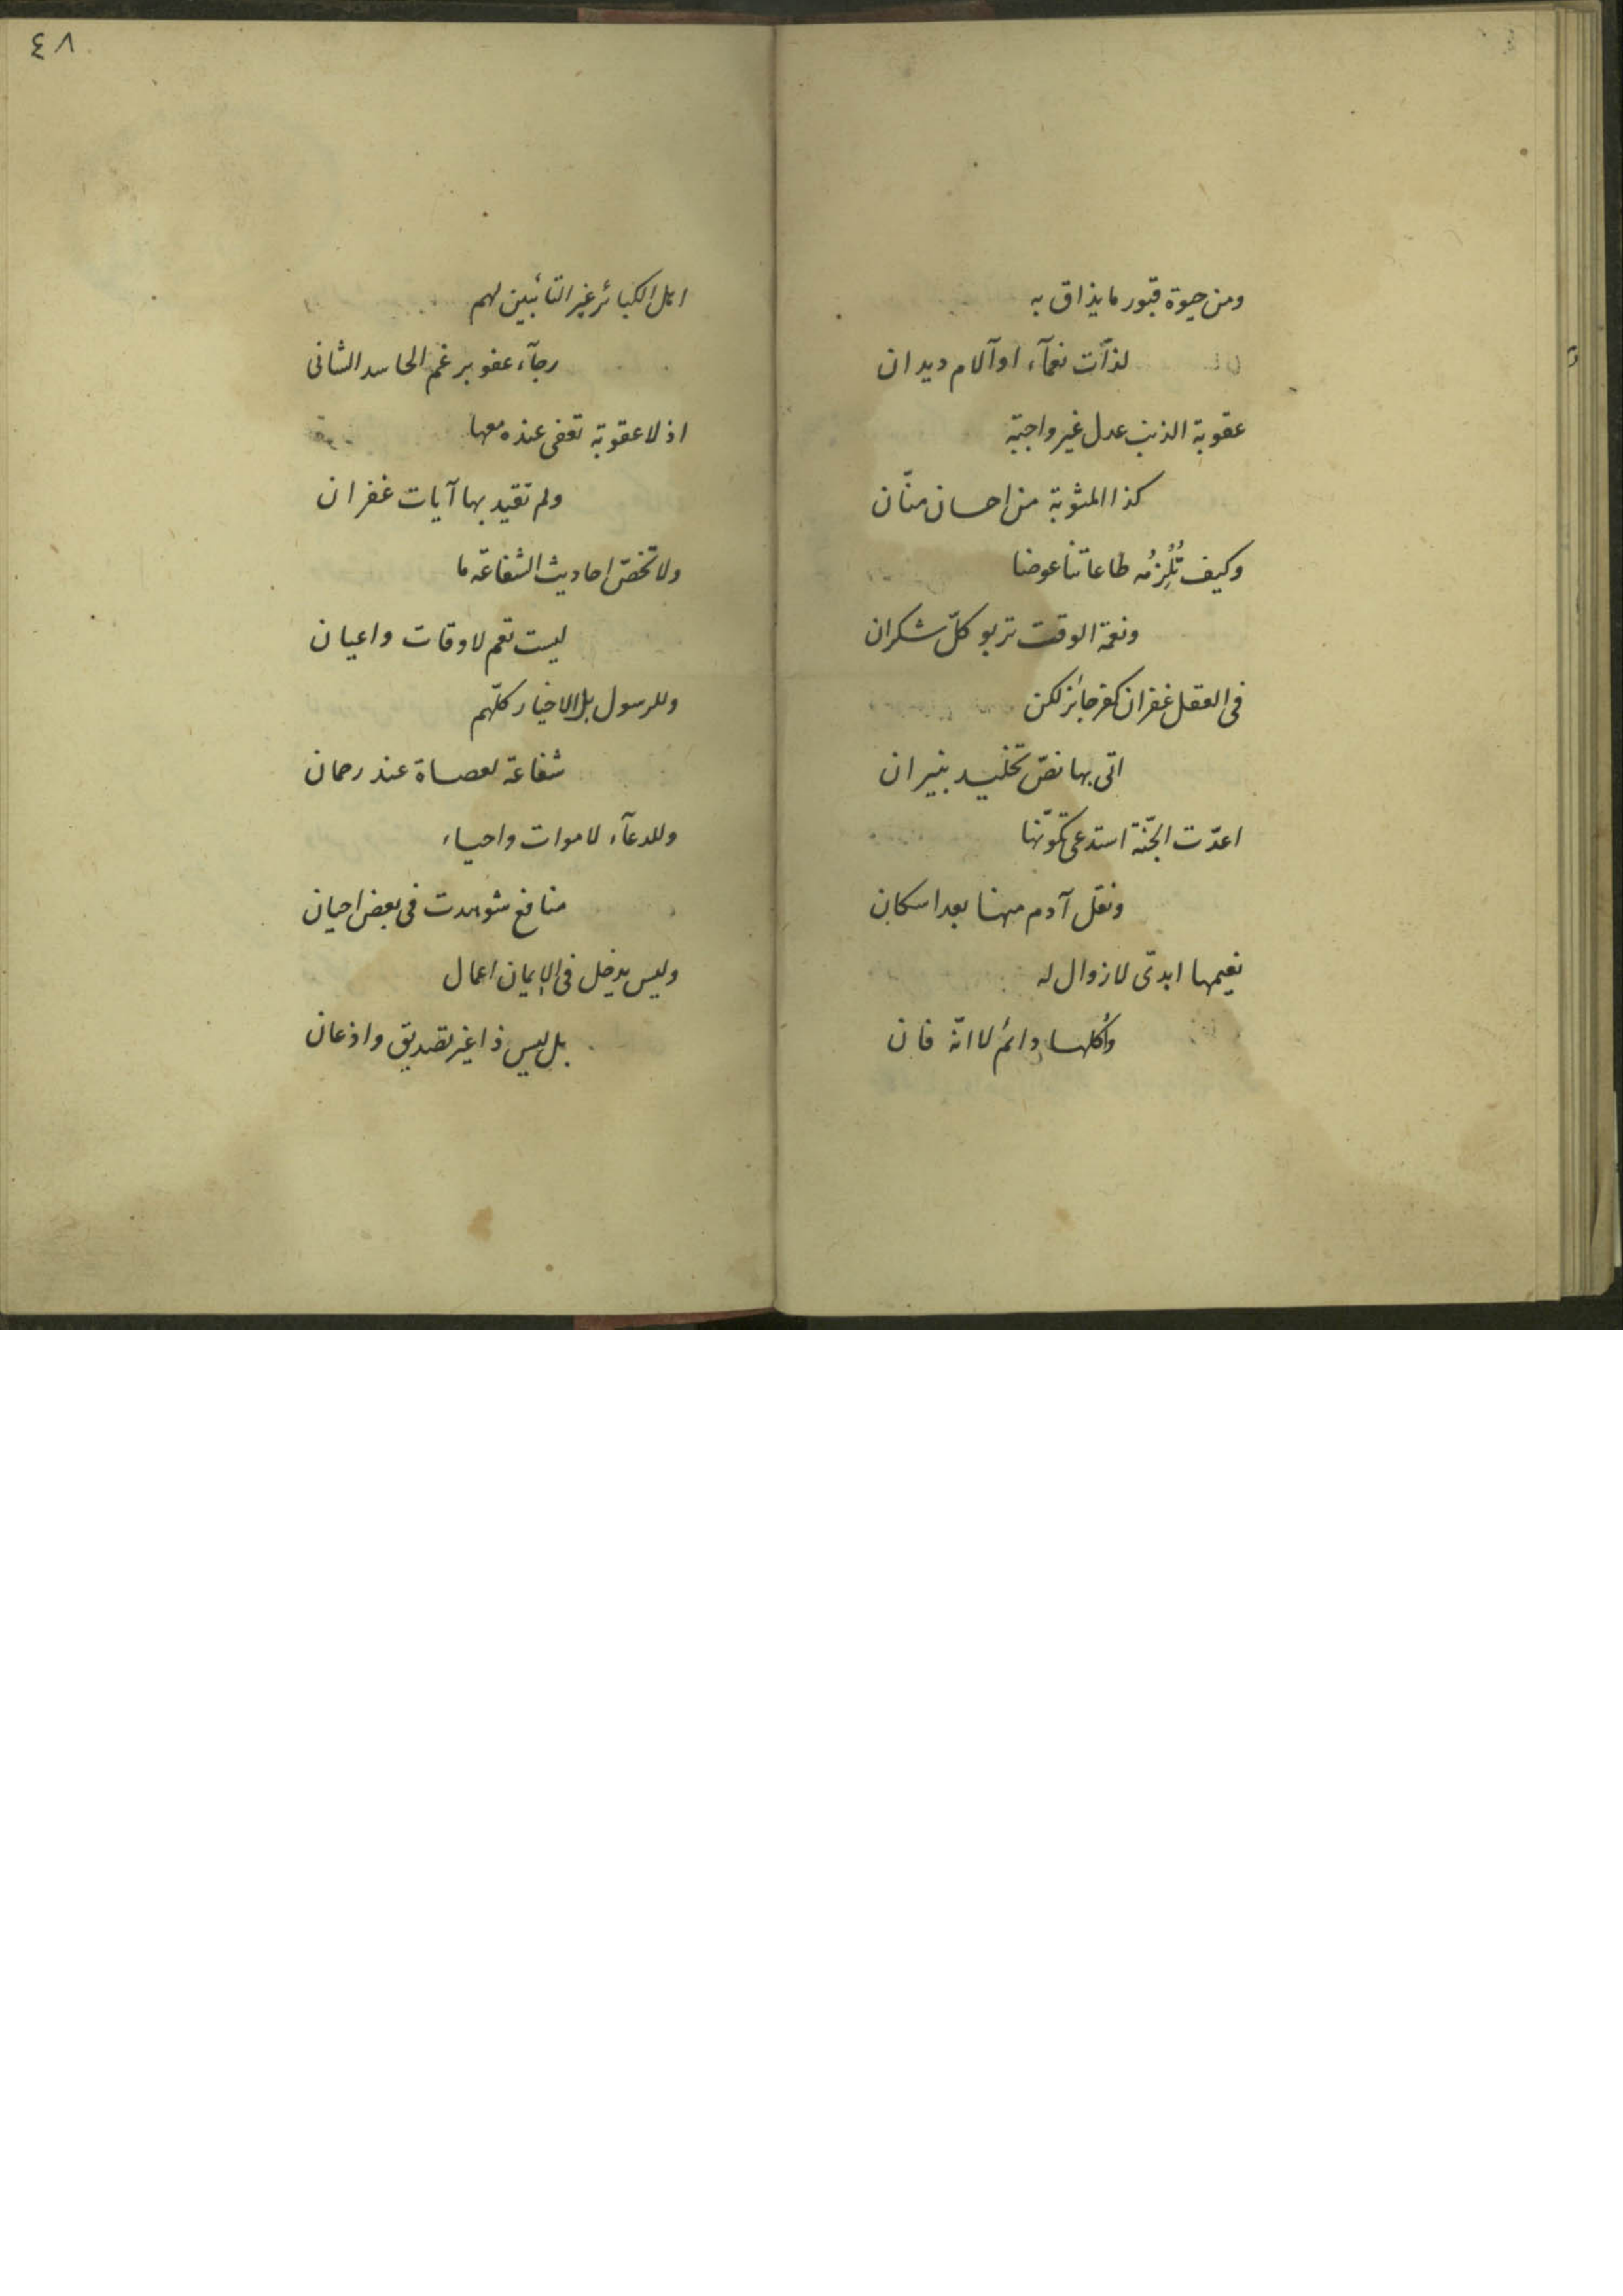 ومن حيوة قبور ما يذاق به
لذّات نعمآء او آلام ديدان
عقوبة الذنب عدل غير واجبة
كذا المثوبة من احسان منّان
وكيف تُلْزِمُه طاعاتنا عوضا
ونعمة الوقت تربو كلّ شكران
فى العقل غفران كفر جائز لكن
اتى بها نصّ تخليد بنيران
اعدّت الجنّة استدعى تكوّنها
ونقل آدم منها بعد اسكان
نعيمها ابدىّ لا زوال له
وأكلها دائم لا انّه فان
٤٨
اهل الكبائر غير التائبين لهم
رجآء عفو برغم الحاسد الشانى
اذ لا عقوبة تعفى عنده معها
ولم تقيد بها آيات غفران
ولا تخصّ احاديث الشفاعة ما
ليست تعم لاوقات واعيان
وللرسول بل الاخيار كلّهم
شفاعة لعصاة عند رحمان
وللدعآء لاموات واحياء
منافع شوهدت فى بعض احيان
وليس يدخل فى الايمان اعمال
بل ليس ذا غير تصديق واذعان